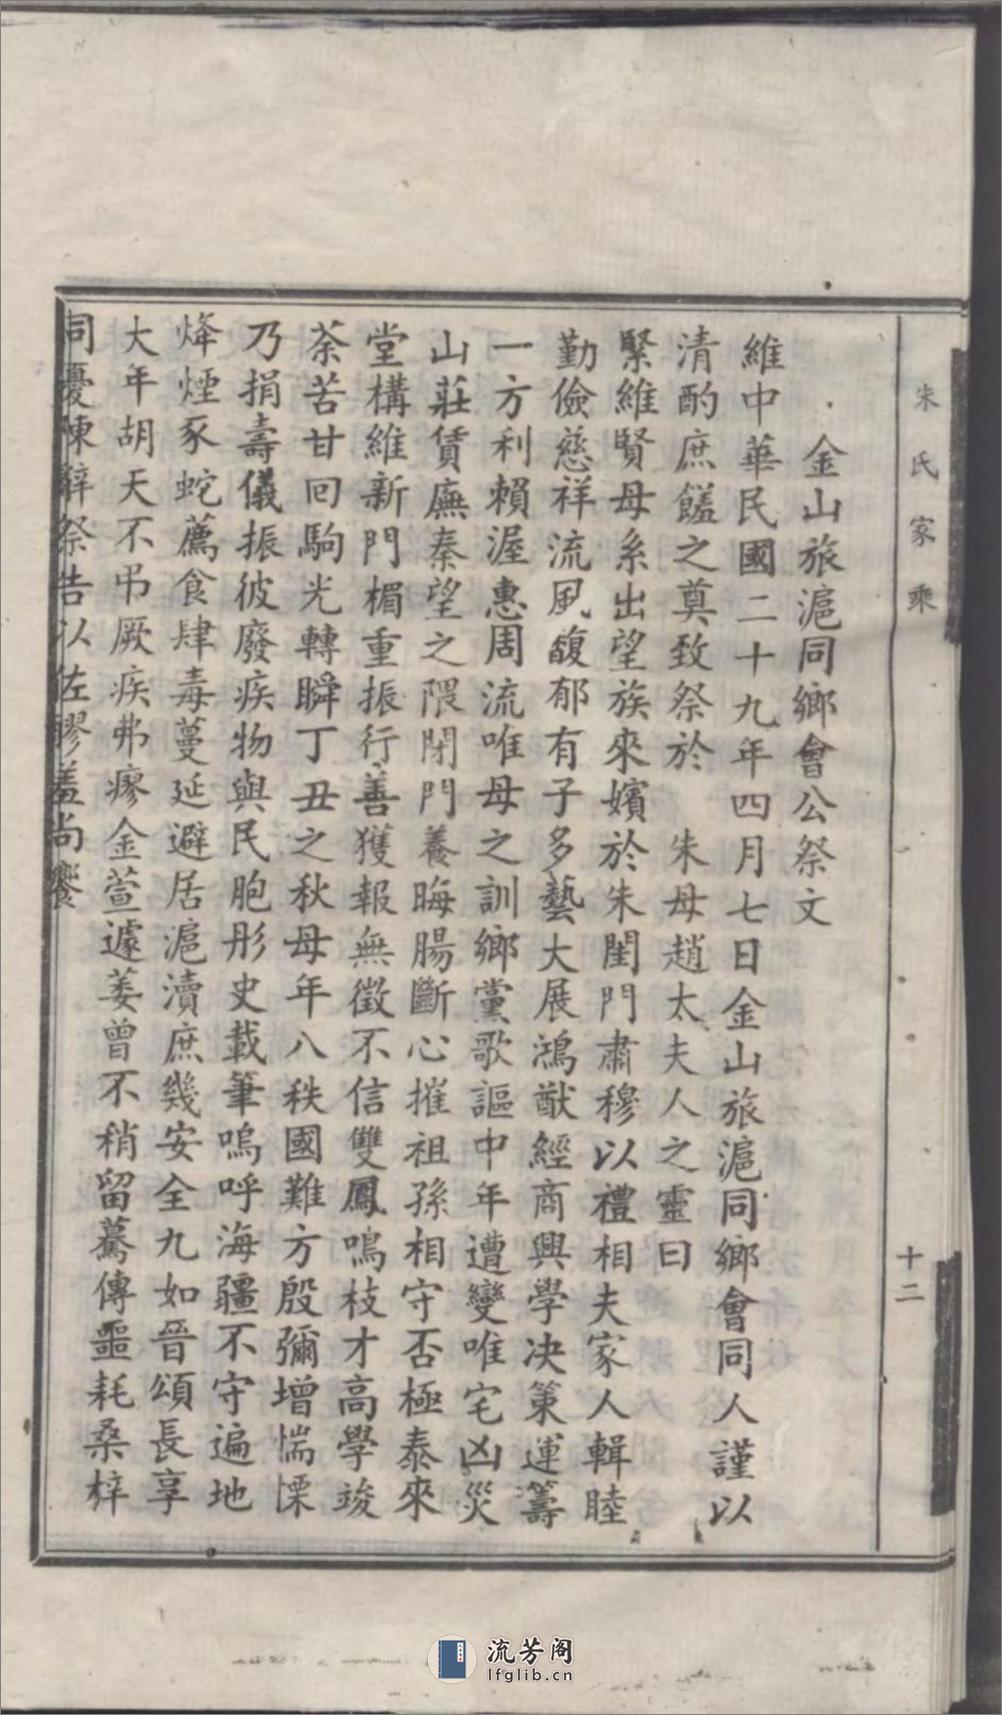 朱氏家乘
十二
金山旅滬同鄉會公祭文
維中華民國二十九年四月七日金山旅滬同鄉會同人謹以
清酌庶饈之奠致祭於　朱母趙太夫人之靈曰
緊維賢母系出望族來嬪於朱閨門肅穆以禮相夫家人輯睦
勤儉慈祥流風馥郁有子多藝大展鴻猷經商興學决策運籌
一方利賴渥惠周流唯母之訓鄉黨歌謳中年遭變唯宅凶災
山莊賃廡秦望之隈閉門養晦腸斷心摧祖孫相守否極泰來
堂構維新門楣重振行善獲報無徵不信雙鳳鳴枝才高學竣
荼苦甘回駒光轉瞬丁丑之秋母年八秩國難方殷彌增惴慄
乃捐壽儀振彼廢疾物與民胞彤史載筆嗚呼海疆不守遍地
烽煙豕蛇薦食肆毒蔓延避居滬瀆庶幾安全九如晉頌長享
大年胡天不弔厥疾弗瘳金萱遽萎曾不稍留驀傳噩耗桑梓
同憂陳辭祭告以佐膠羞尚饗
流芳阁
lfglib.cn